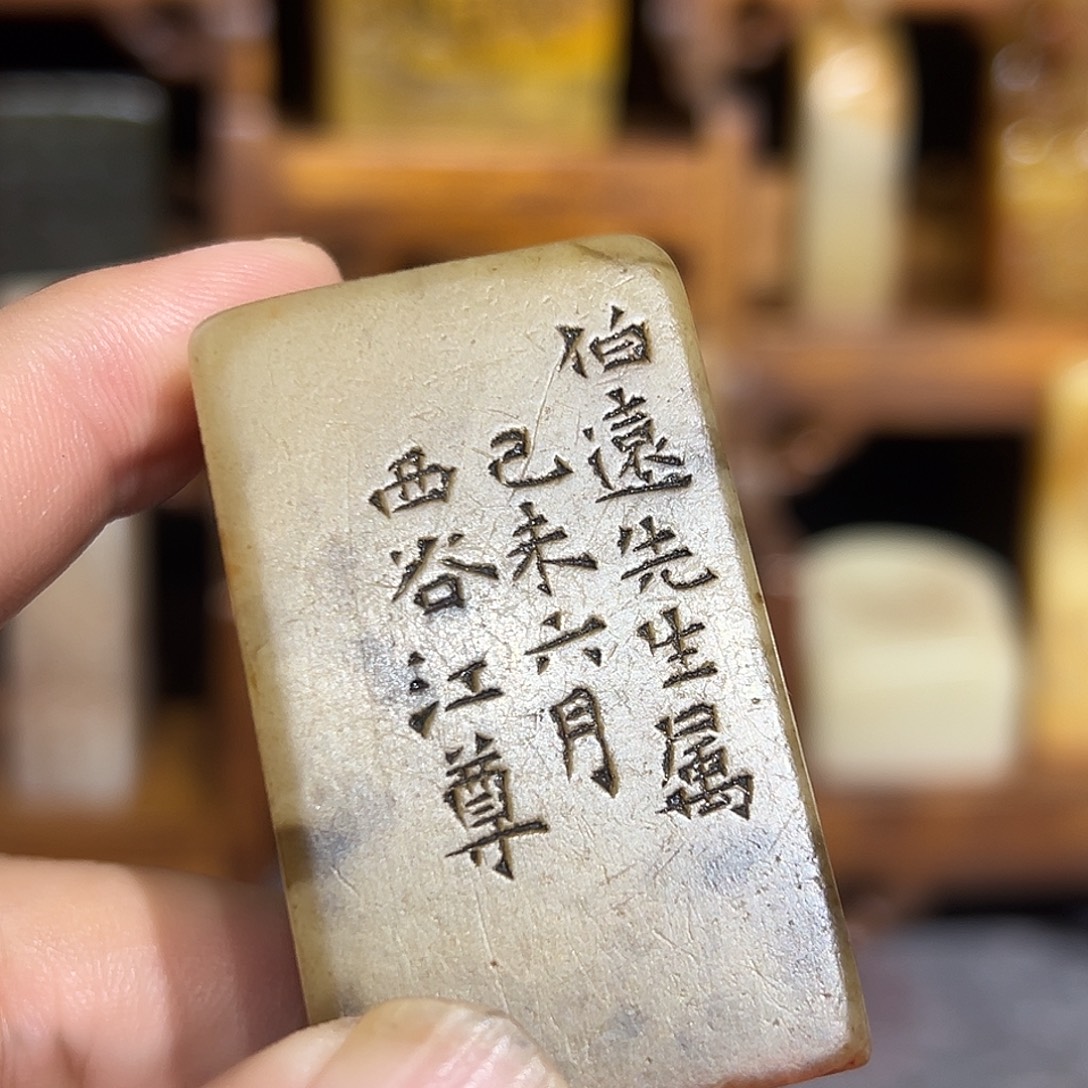 伯遠先生属
己未六月
西谷江尊